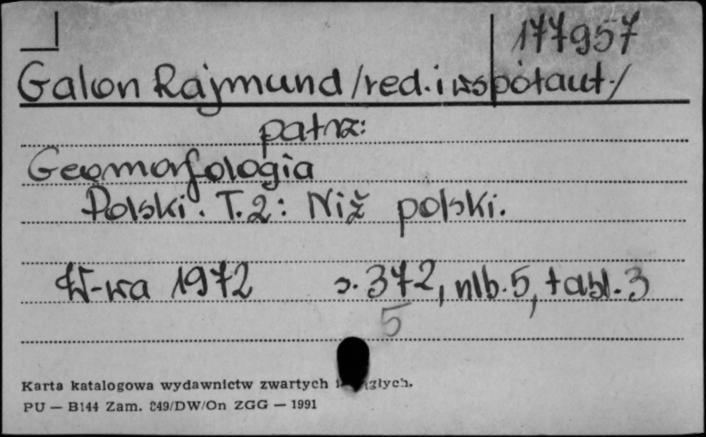 177957
Galon Rajmund /red. i współaut./
patrz:
Geomorfologia
Polski. T.2: Niż polski.
W-wa 1972 s. 372, nlb. 5, tabl. 3
5
Karta katalogowa wydawnictw zwartych i ciągłych.
PU — B144 Zam. 849/DW/On ZGG — 1991